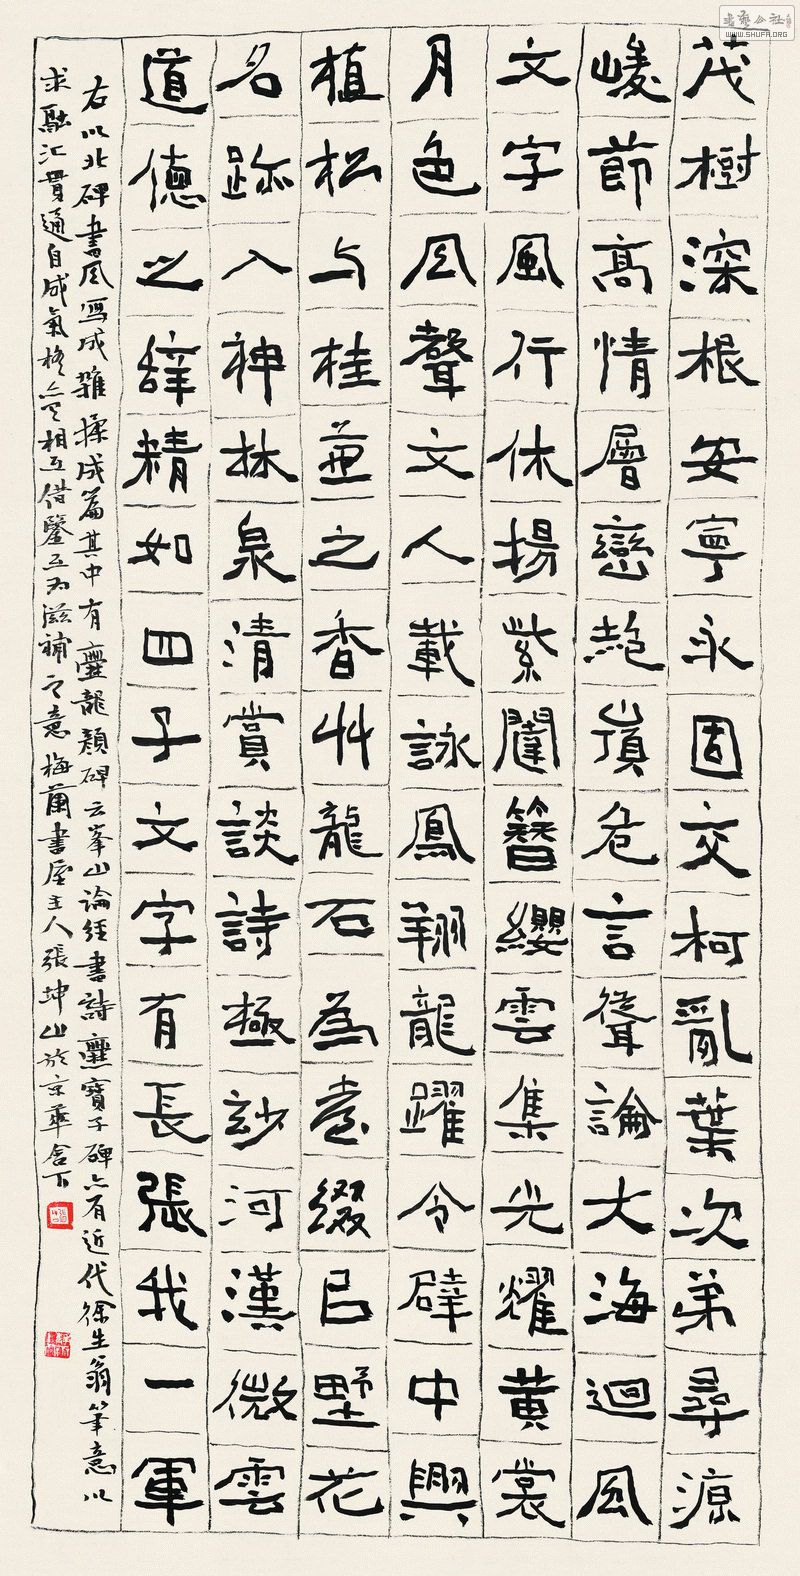 茂樹深根安寧永固交柯亂葉次弟尋源
峻節高情層巒絶嶺危言聳論大海迴風
文字風行休揚紫闥簪纓雲集光耀黃裳
月色風聲文人載詠鳳翔龍躍令辟中興
植松与桂蓝之香艸龍石為臺綴㠯野花
名跡入神林泉清賞談詩極玅河漢微雲
道德之辭精如四子文字有長張我一軍
右以北碑書風寫成雜揉成篇其中有爨龍顏碑云峯山論經書詩爨寶子碑亦有近代徐生翁筆意以
求融汇貫通自成氣格亦是相互借鑒互为滋補之意梅蘭書屋主人張坤山於京華舍下
書藝公社
WWW.SHUFA.ORG